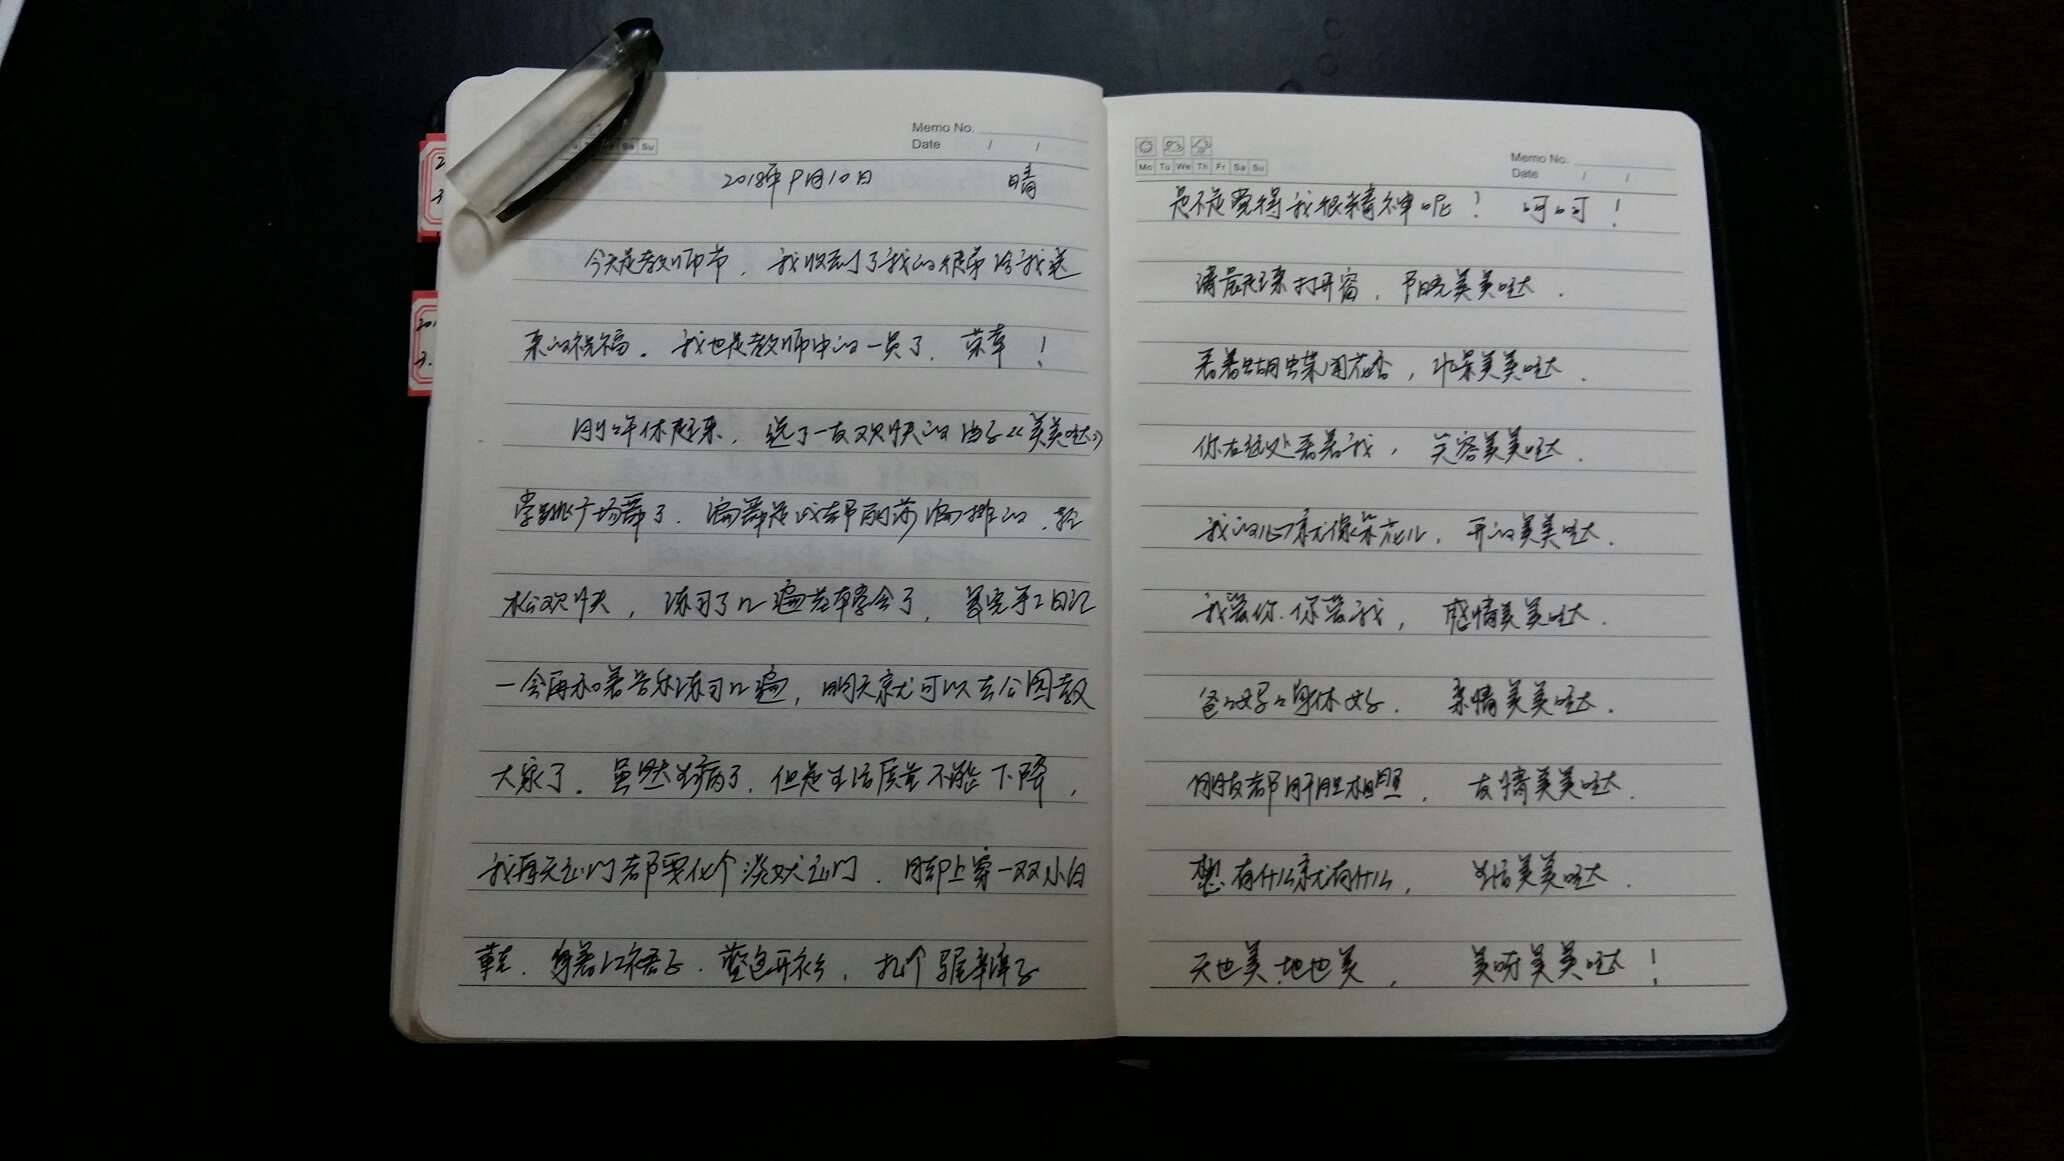 Memo No.
Sa Su
Date / /
2018年9月10日 晴
今天是教师节，我收到了我的徒弟给我送
来的祝福。我也是教师中的一员了，荣幸！
刚午休起来，选了一支欢快的曲子《美美哒》
学跳广场舞了。编舞是戎都丽莎编排的，轻
松欢快，练习了几遍基本学会了，写完手工日记
一会再和着音乐练习几遍，明天就可以去公园教
大家了。虽然生病了，但是生活质量不能下降，
我每天出门都要化个淡妆出门，脚上穿一双小白
鞋，穿着红裙子，蓝色开衫，扎个马尾辫子
Memo No.
Mo Tu We Th Fr Sa Su
Date / /
是不是觉得我很精神呢？呵呵！
清晨起来打开窗，阳光美美哒，
看着蝴蝶闻花香，水果美美哒，
你在远处看着我，笑容美美哒，
我的心就像朵花儿，开的美美哒，
我爱你，你爱我，感情美美哒，
爸爸妈妈身体好，亲情美美哒，
朋友都肝胆相照，友情美美哒，
想有什么就有什么，生活美美哒，
天也美，地也美，美呀美美哒！
201
3.